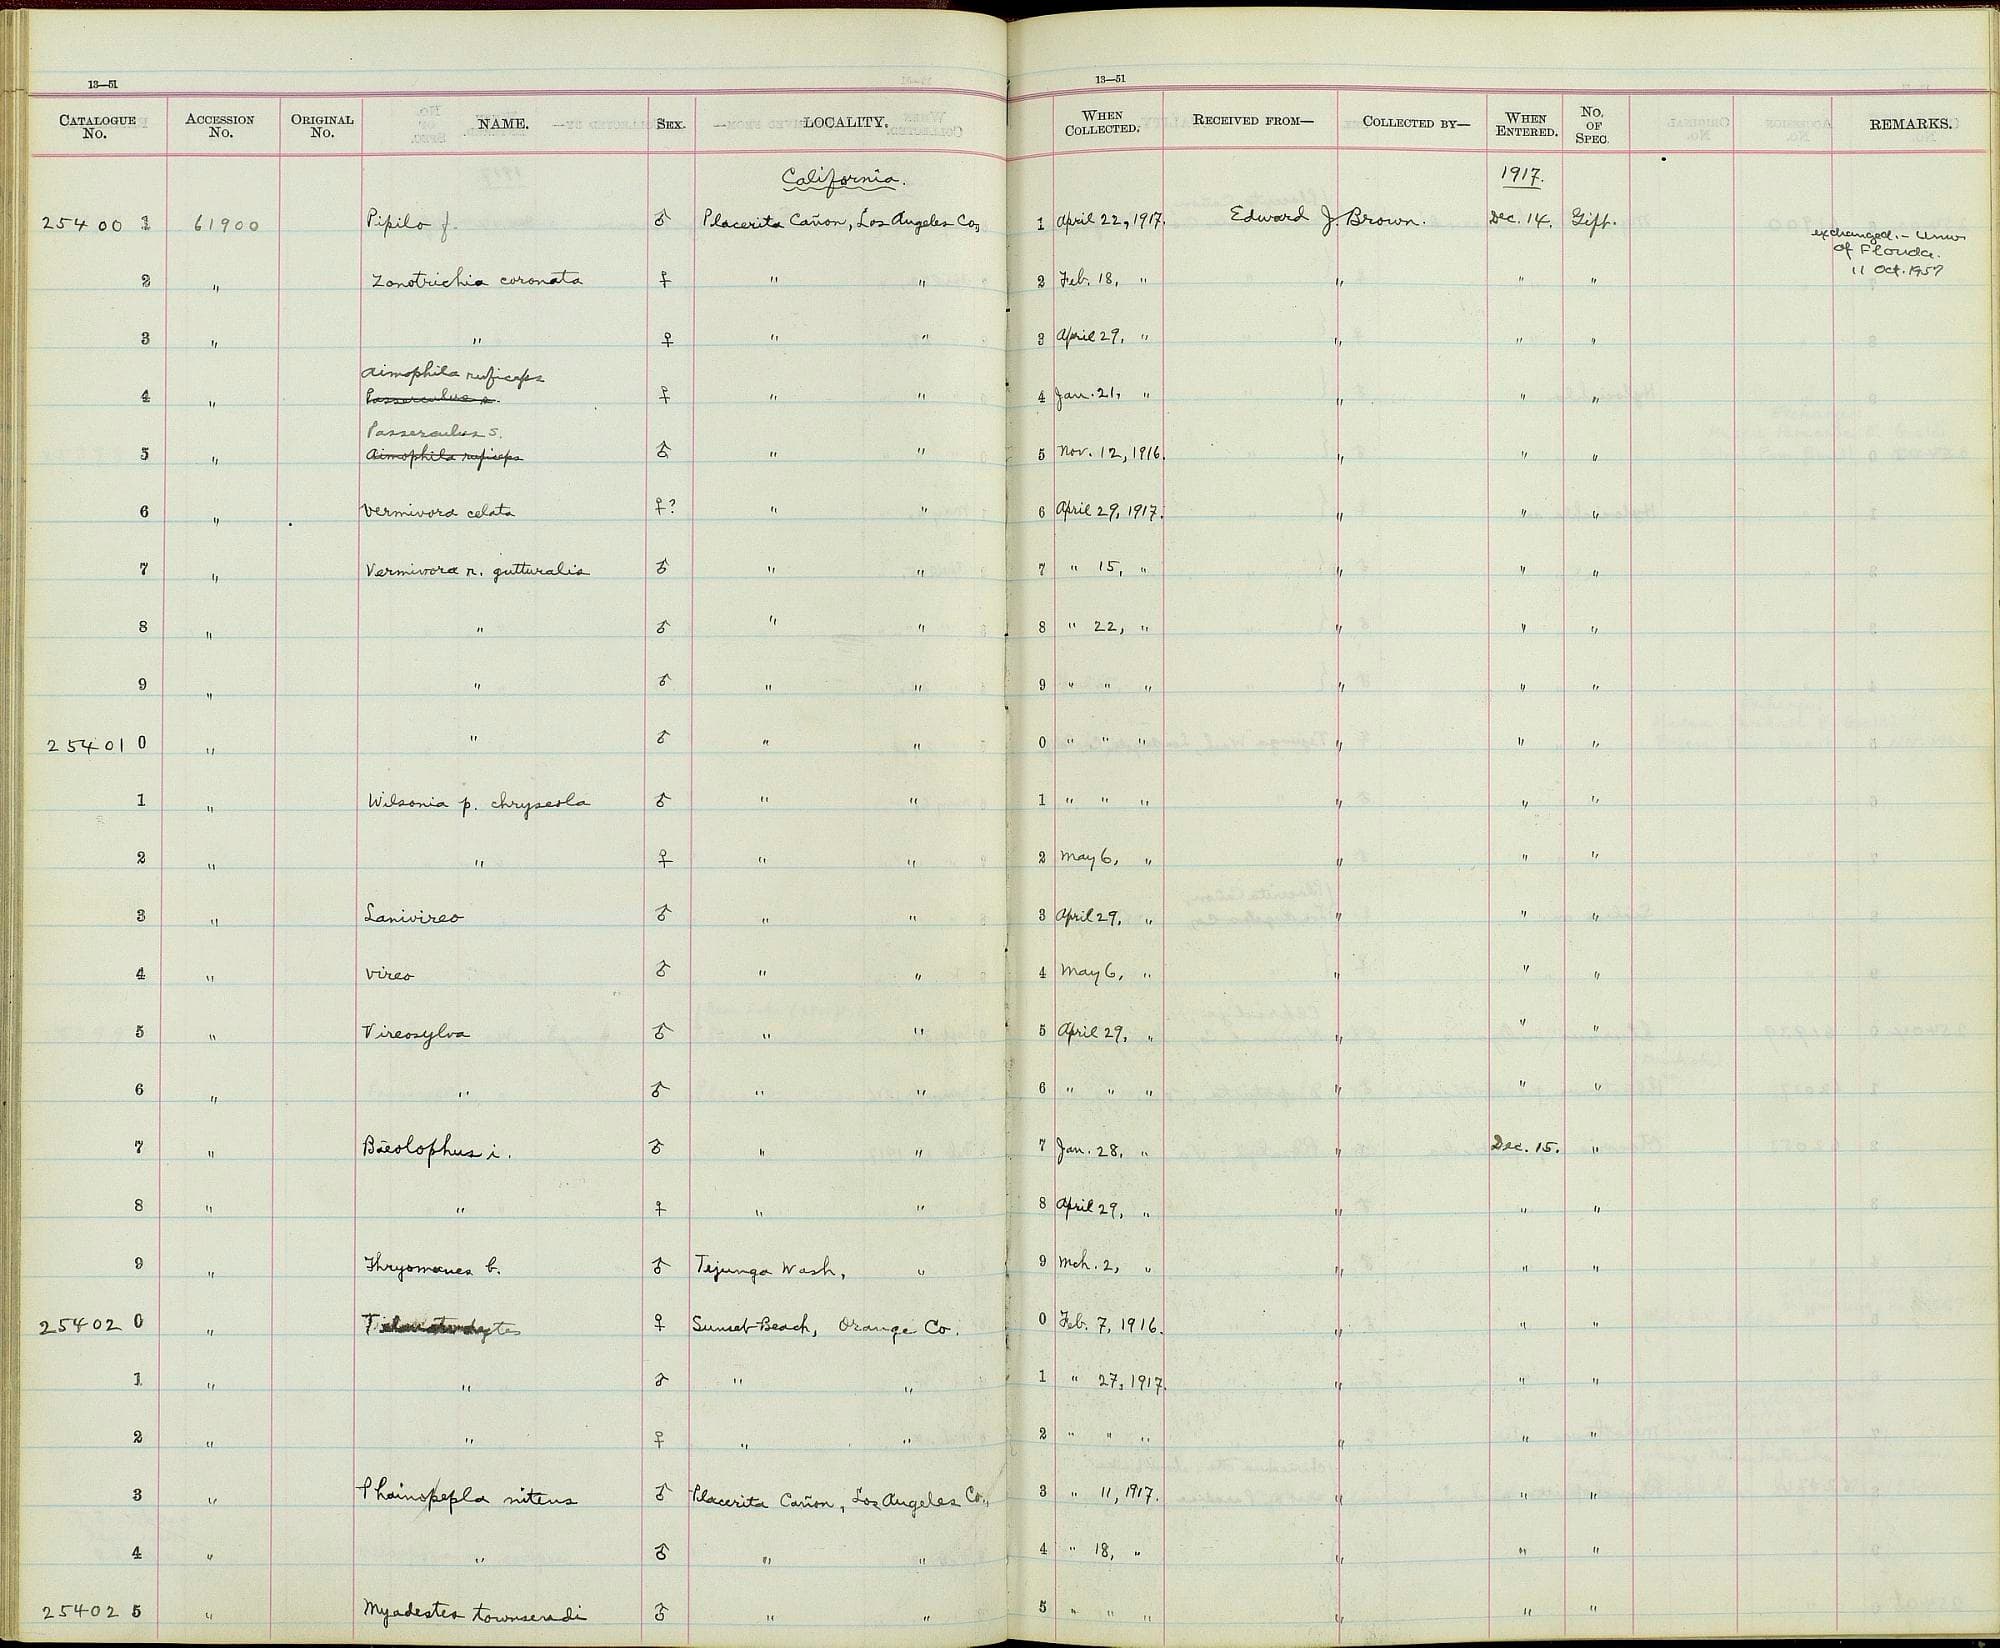 13—51
13—51
CATALOGUE No. ACCESSION No. ORIGINAL No. NAME. SEX. LOCALITY. WHEN COLLECTED. RECEIVED FROM— COLLECTED BY— WHEN ENTERED. No. OF SPEC. REMARKS.
California. 1917.
25400 1 61900 Pipilo f. ♂ Placerita Cañon, Los Angeles Co., 1 April 22, 1917. Edward J. Brown. Dec. 14. Gift.
exchanged. - Univ.
of Florida.
11 Oct. 1957
2 " Zonotrichia coronata ♀ " " 2 Feb. 18, " " " "
3 " " ♀ " " 3 April 29, " " " "
Aimophila ruficeps
4 " Passerculus s. ♀ " " 4 Jan. 21, " " " "
Passerculus s.
5 " Aimophila ruficeps ♂ " " 5 Nov. 12, 1916. " " "
6 " Vermivora celata ♀? " " 6 April 29, 1917. " " "
7 " Vermivora r. gutturalis ♂ " " 7 " 15, " " " "
8 " " ♂ " " 8 " 22, " " " "
9 " " ♂ " " 9 " " " " " "
25401 0 " " ♂ " " 0 " " " " " "
1 " Wilsonia p. chryseola ♂ " " 1 " " " " " "
2 " " ♀ " " 2 May 6, " " " "
3 " Lanivireo ♂ " " 3 April 29, " " " "
4 " Vireo ♂ " " 4 May 6, " " " "
5 " Vireosylva ♂ " " 5 April 29, " " " "
6 " " ♂ " " 6 " " " " " "
7 " Baeolophus i. ♂ " " 7 Jan. 28, " " Dec. 15. "
8 " " ♀ " " 8 April 29, " " " "
9 " Thryomanes b. ♂ Tejunga Wash, " 9 Mch. 2, " " " "
25402 0 " ♀ Sunset Beach, Orange Co. 0 Feb. 7, 1916. " " "
1 " " ♂ " " 1 " 27, 1917. " " "
2 " " ♀ " " 2 " " " " " "
3 " Phainopepla nitens ♂ Placerita Cañon, Los Angeles Co., 3 " 11, 1917. " " "
4 " " ♂ " " 4 " 18, " " " "
25402 5 " Myadestes townsendi ♂ " " 5 " " " " " "